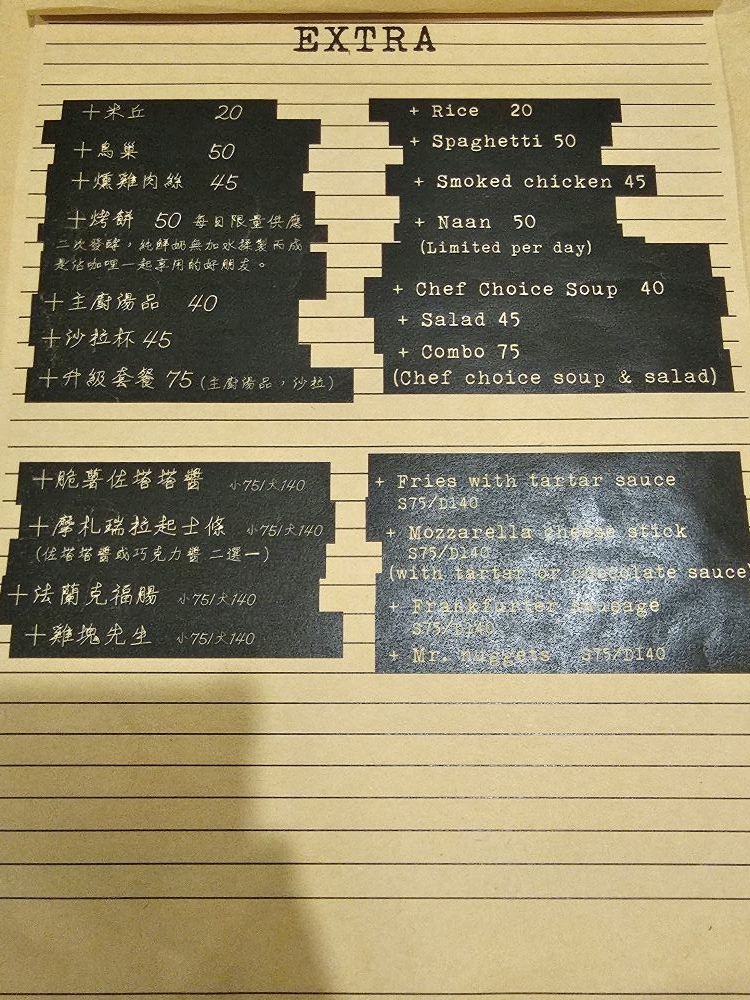 EXTRA
＋米丘 20
＋鳥巢 50
＋燻雞肉絲 45
＋烤餅 50 每日限量供應
二次發酵，純鮮奶無加水揉製而成
是沾咖哩一起享用的好朋友。
＋主廚湯品 40
＋沙拉杯 45
＋升級套餐 75 (主廚湯品，沙拉)
+ Rice 20
+ Spaghetti 50
+ Smoked chicken 45
+ Naan 50
(Limited per day)
+ Chef Choice Soup 40
+ Salad 45
+ Combo 75
(Chef choice soup & salad)
＋脆薯佐塔塔醬 小75/大140
＋摩札瑞拉起士條 小75/大140
(佐塔塔醬或巧克力醬 二選一)
＋法蘭克福腸 小75/大140
＋雞塊先生 小75/大140
+ Fries with tartar sauce
S75/D140
+ Mozzarella cheese stick
S75/D140
(with tartar or chocolate sauce)
+ Frankfurter sausage
S75/D140
+ Mr. nuggets S75/D140